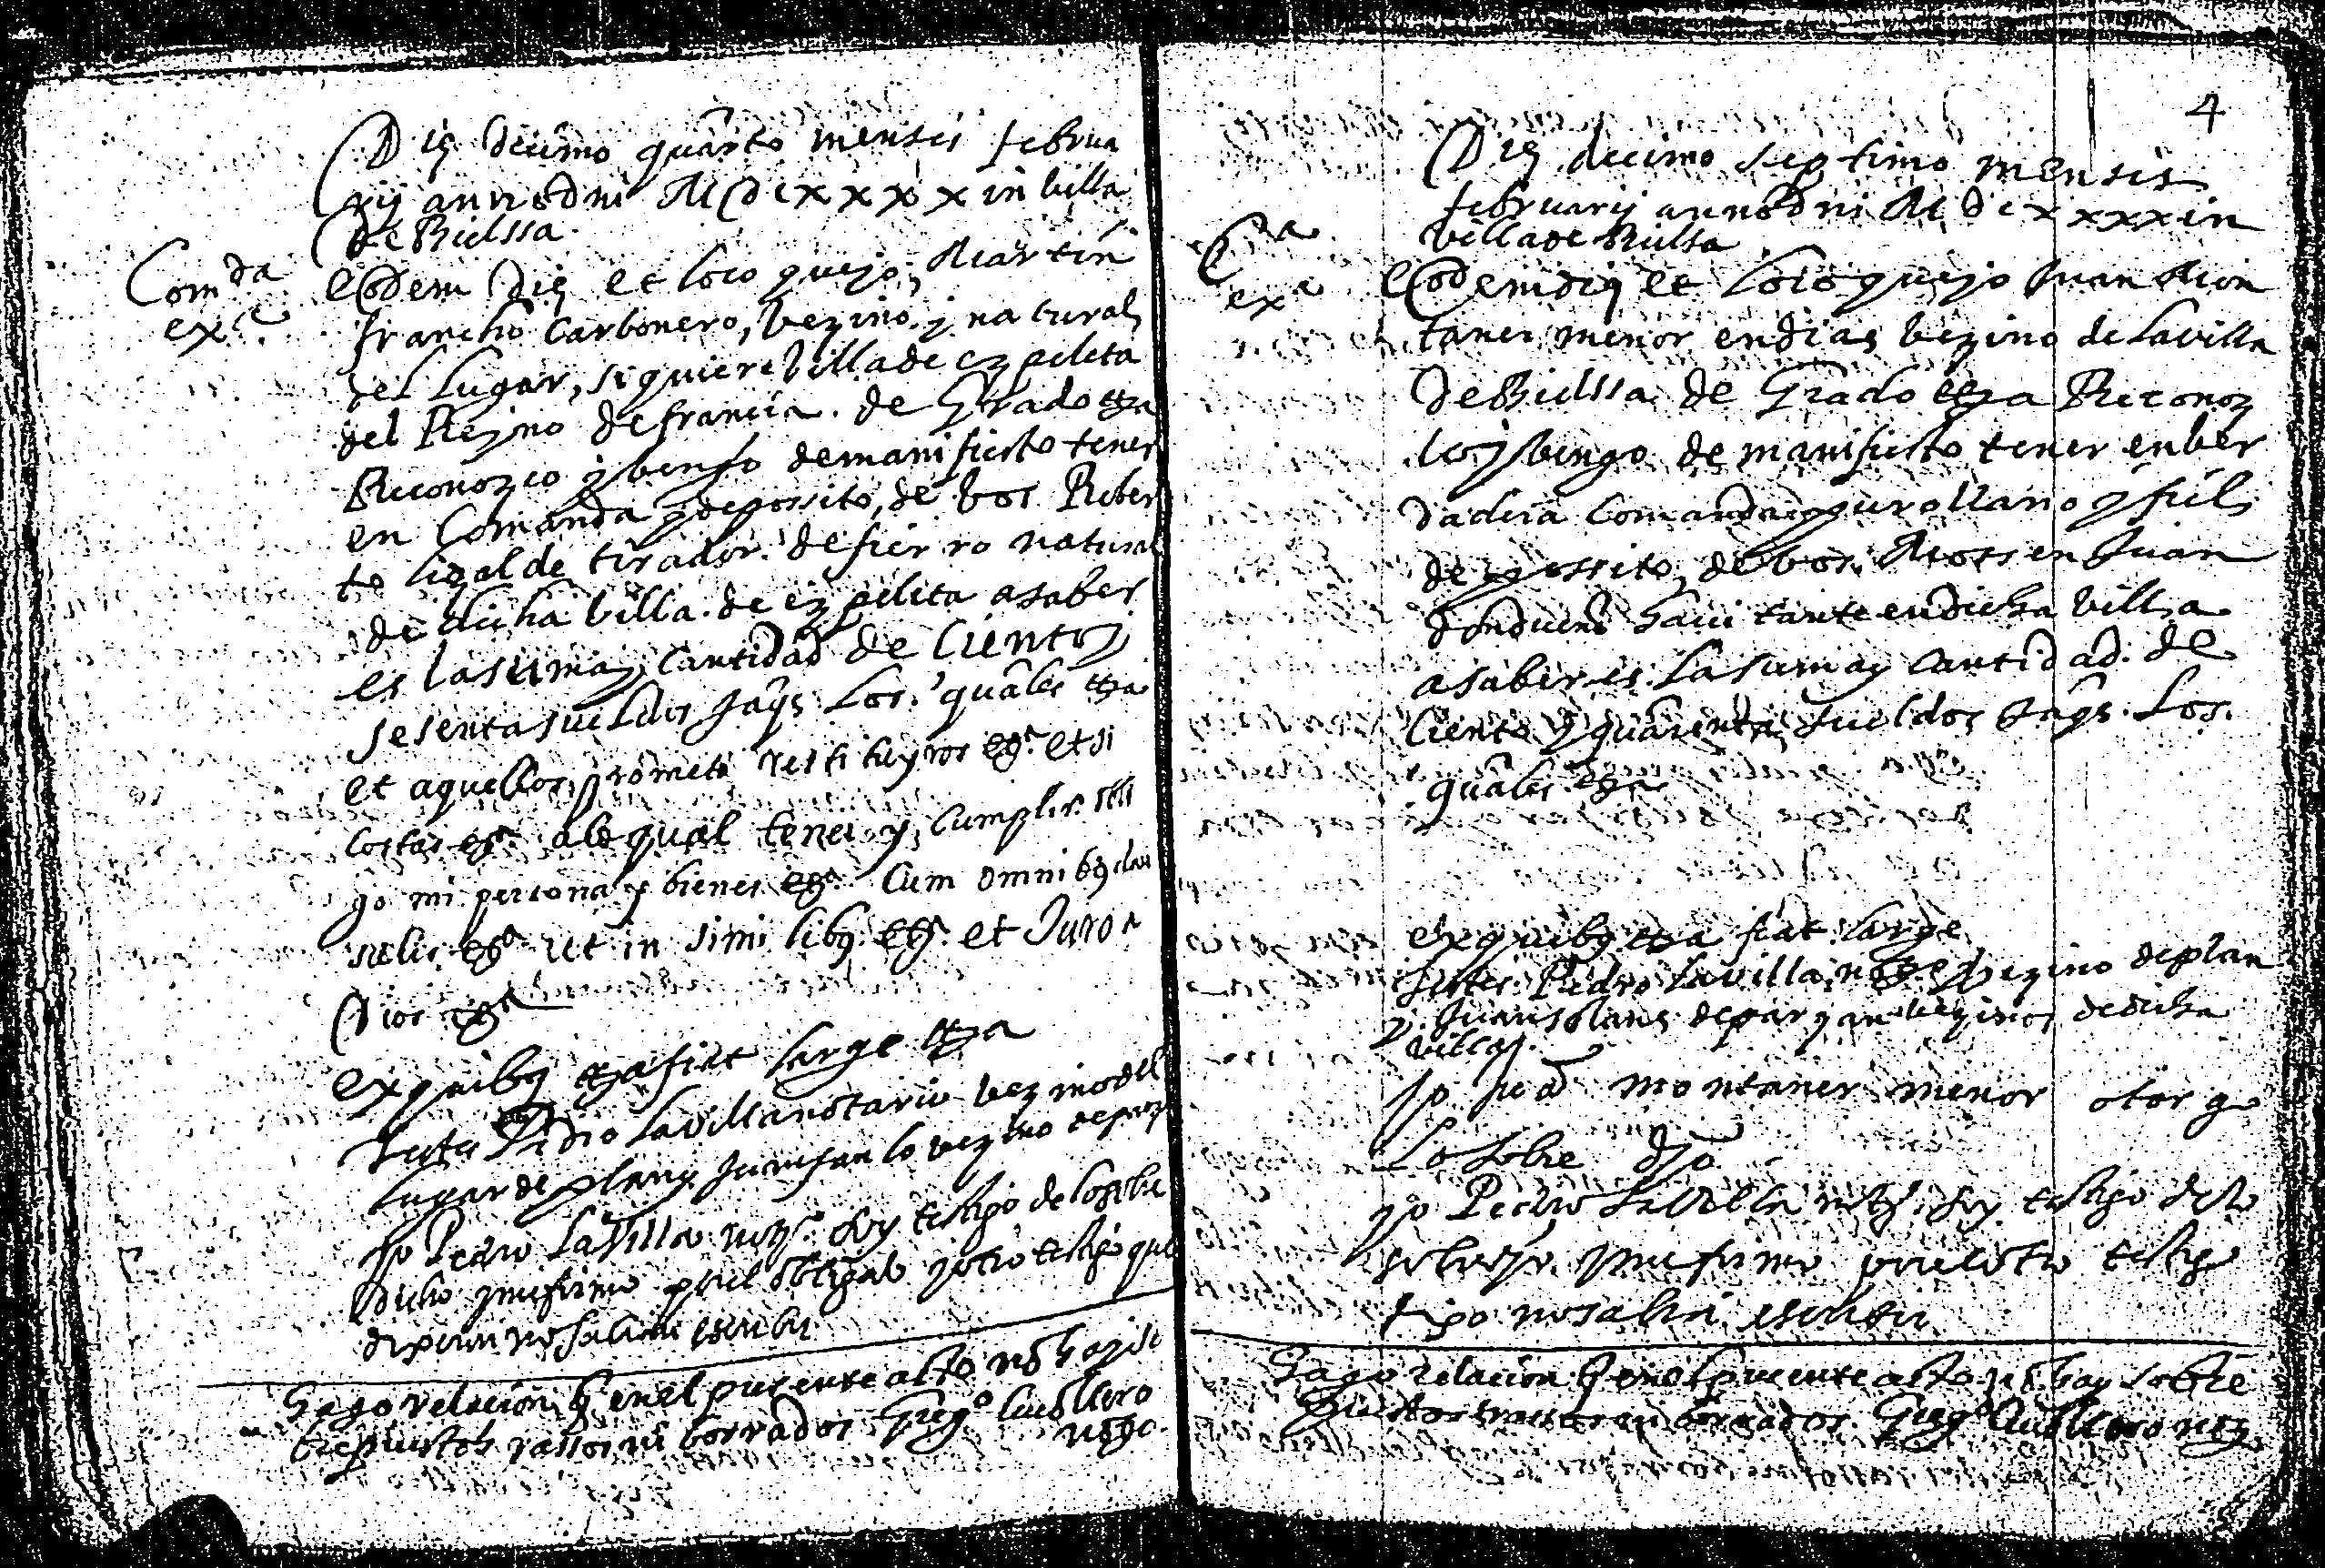 Die decimo quarto mensis februa
rij anno dni MDCXXXX in villa
de Bielssa
Comda
exta.
Eodem die et loco que jo, Martin
francho Carbonero, vezino y natural
del lugar, siquiere villa de ezpeleta
del Reyno de francia. de Grado etza
Reconozco y vengo de manifiesto tener
en Comanda y depossito, de vos Rober
to ligalde tirador de fierro natural
de dicha villa de ezpeleta a saber
es la suma y Cantidad de Ciento y
sesenta sueldos Jaqs. los quales etza
et aquellos prometo restituyros etza. et si
costas etza. a lo qual tener y Cumplir obli
go mi persona y bienes etza. Cum omnibus clau
sulis etza. ut in similibus etza. et Juro a
Dios etza
ex quibus etza fiat large etza
testes Pedro Lavilla notario vezino del
lugar de plan y
yo Pedro Lavilla notº. soy testigo de lo sobre
dicho y me firmo por el obligado y otro testigo que
dixeron no sabian escribir
Hago relacion q en el presente acto no hay so
brepuestos rassos ni borrados Gregº
notº.
4
Die decimo septimo mensis
februarij anno dni MDCXXXX in
villa de Bielsa
Cda
exa
Eodem die et loco que jo Juan Mon
taner menor en dias vezino de la villa
de Bielssa de Grado etza Reconoz
co y vengo de manifiesto tener en ver
dadera Comanda puro llano y fiel
depossito, de vos Mossen Juan
habitante en dicha villa
a saber es la suma y Cantidad de
Ciento y quarenta sueldos Jaqs. los
quales etza
ex quibus etza fiat large
testes Pedro Lavilla notº vezino de plan
y Juan Solans de parzan vezinos de dicha
villa.
Jo Juã montaner menor otorgo
lo sobre djo
yo Pedro Lavilla notº. soy testigo de lo
sobredjo. y me firmo por el otro testigo
q dixo no sabia escribir
Hago relacion q en el presente acto no hay sobre
puestos rassos ni borrados. Gregº notº